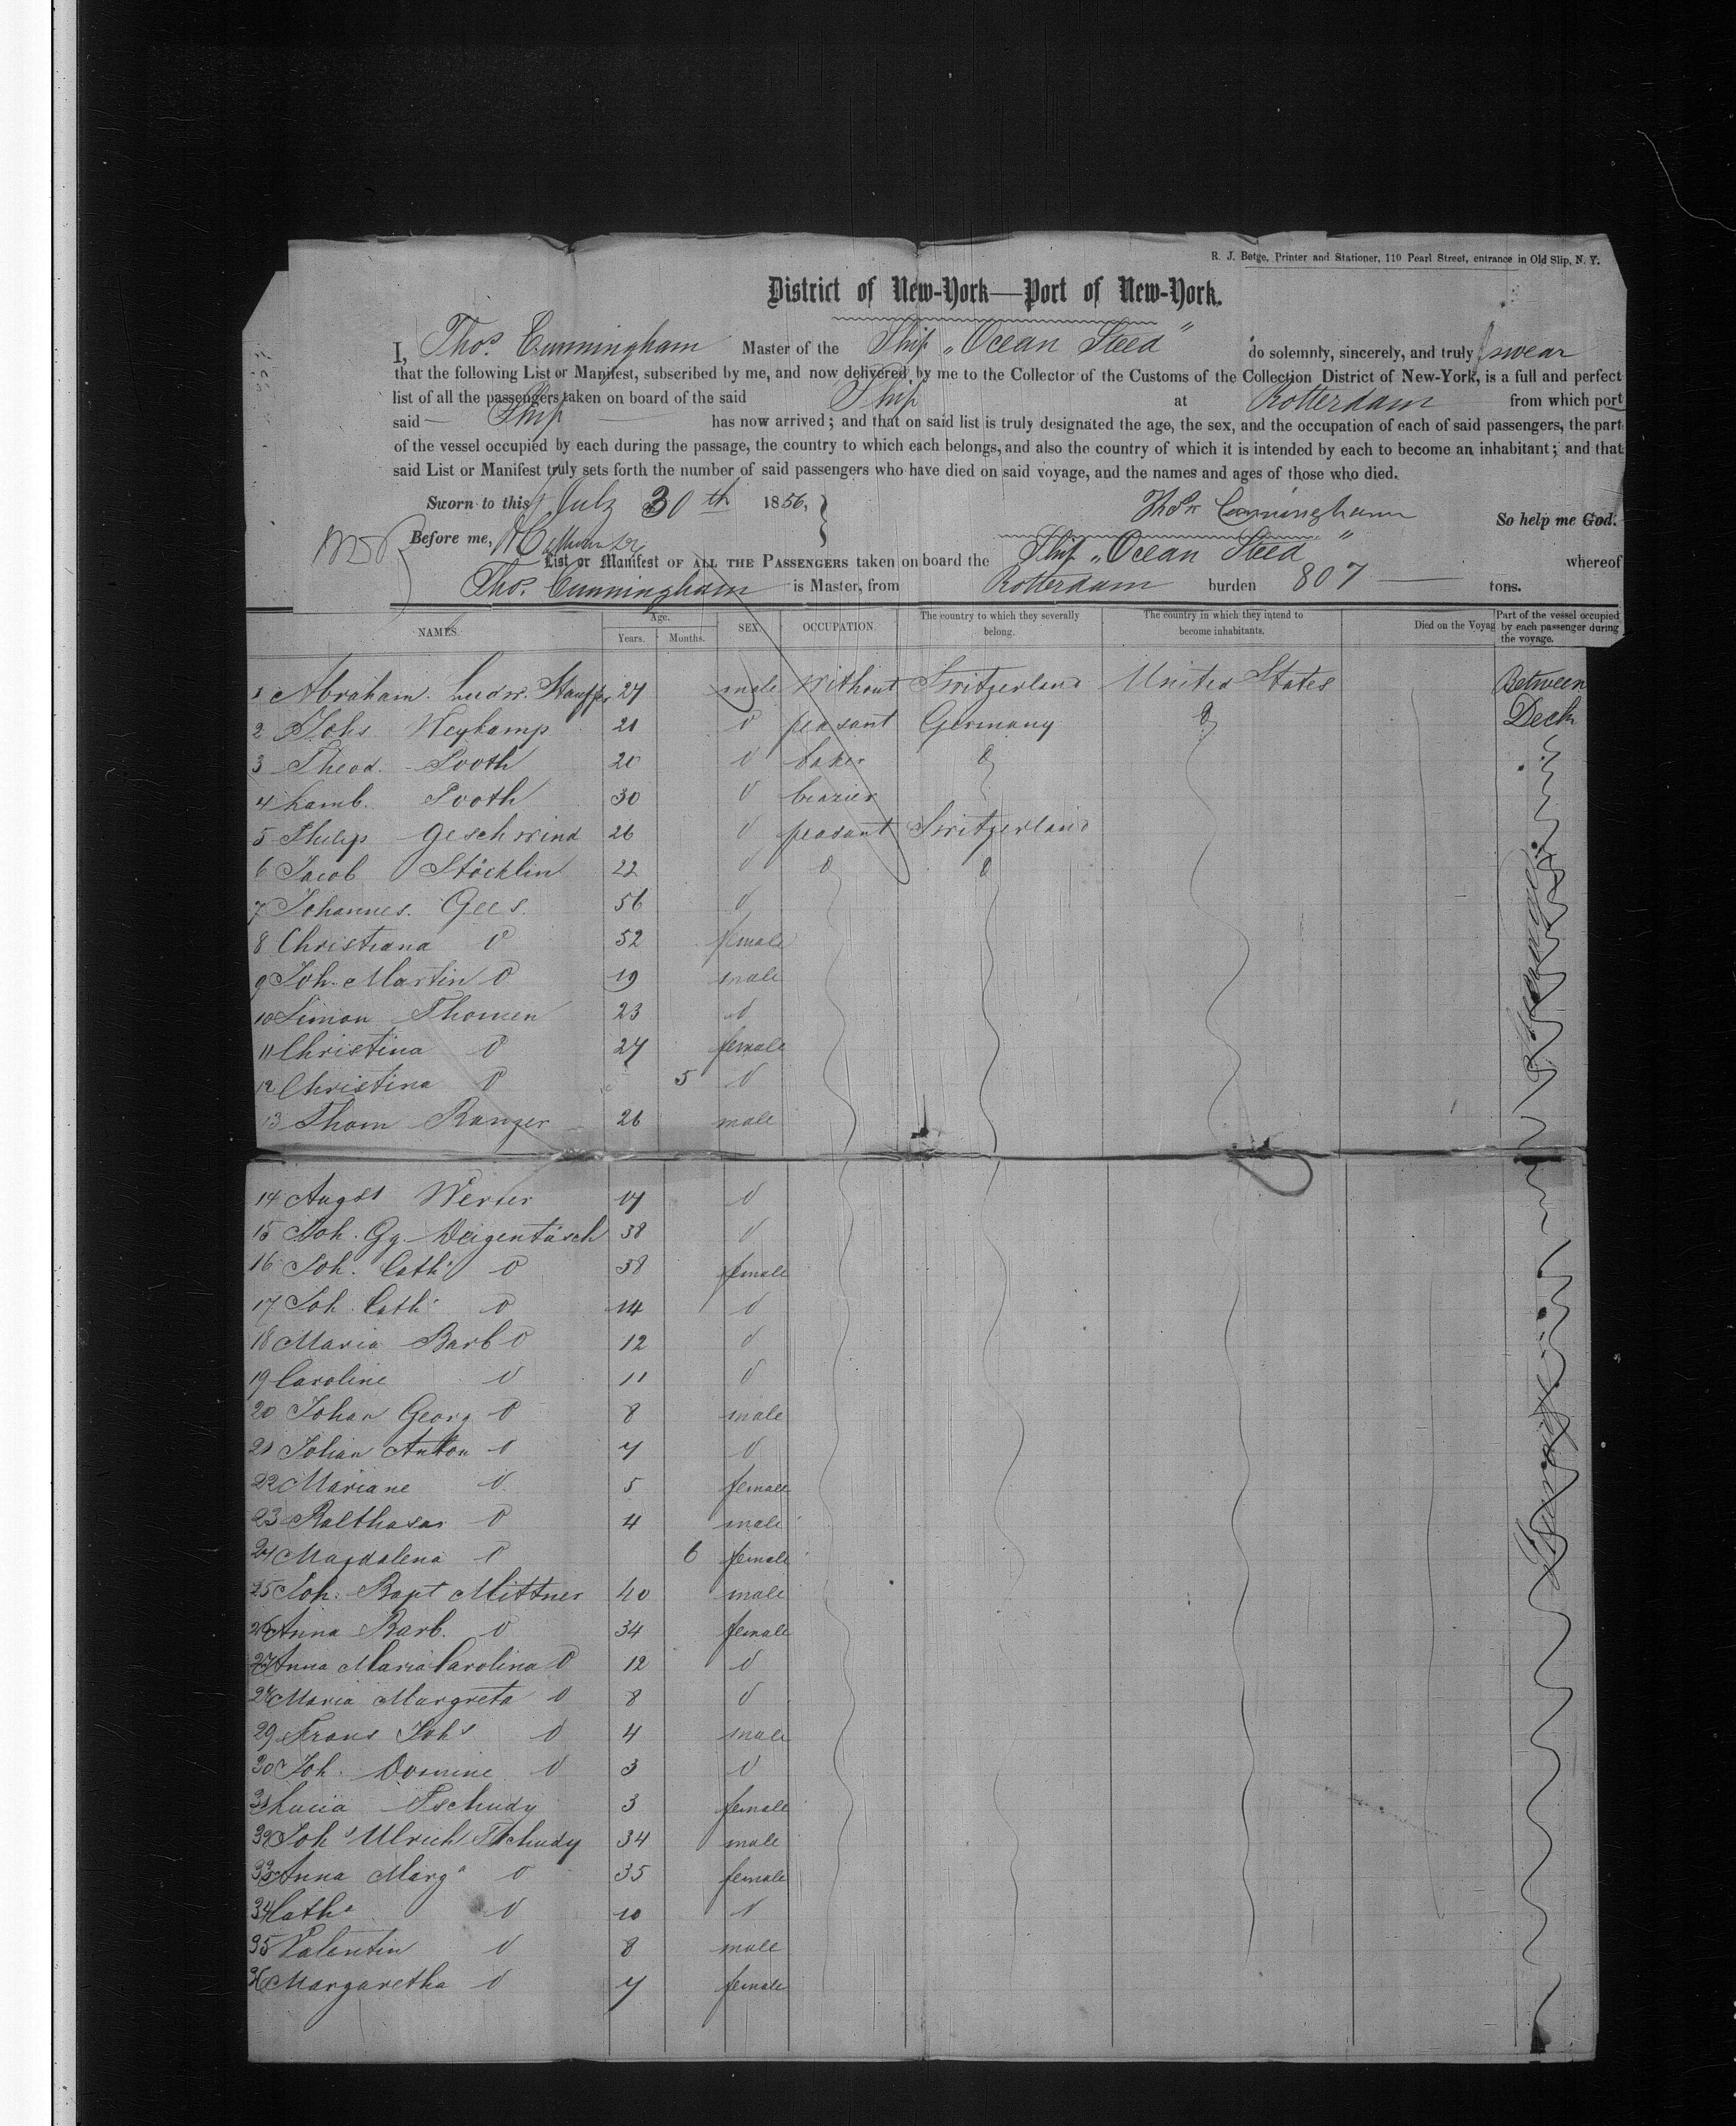 R. J. Betge, Printer and Stationer, 110 Pearl Street, entrance in Old Slip, N. Y.
District of New-York—Port of New-York.
I, Thos. Cunningham Master of the Ship „Ocean Steed" do solemnly, sincerely, and truly swear
that the following List or Manifest, subscribed by me, and now delivered by me to the Collector of the Customs of the Collection District of New-York, is a full and perfect
list of all the passengers taken on board of the said Ship at Rotterdam from which port
said Ship has now arrived; and that on said list is truly designated the age, the sex, and the occupation of each of said passengers, the part
of the vessel occupied by each during the passage, the country to which each belongs, and also the country of which it is intended by each to become an inhabitant; and that
said List or Manifest truly sets forth the number of said passengers who have died on said voyage, and the names and ages of those who died.
Sworn to this July 30th 1856, Thos Cunningham So help me God.
Before me,
List or Manifest OF ALL THE PASSENGERS taken on board the Ship „Ocean Steed" whereof
Thos. Cunningham is Master, from Rotterdam burden 807 tons.
NAMES. Age. Years. Months. SEX. OCCUPATION. The country to which they severally belong. The country in which they intend to become inhabitants. Died on the Voyag Part of the vessel occupied by each passenger during the voyage.
1 Abraham Ludw. Stauffer 27 male without Switzerland United States Between
2 Johs Heykamp 21 0 peasant Germany 0 Deck
3 Theod. Pooth 20 0 baker 0
4 Lamb. Pooth 30 0 brazier
5 Philip Geschwind 26 0 peasant Switzerland
6 Jacob Stöcklin 22 0 0 0
7 Johannes Gees 56 0
8 Christiana 0 52 female
9 Joh. Martin 0 19 male
10 Simon Thomen 23 0
11 Christina 0 27 female
12 Christina 0 5 0
13 Thom Ranger 26 male
14 Augst Werrer 17 0
15 Joh. Gg. Deigentäsch 38 0
16 Joh. Cath 0 38 female
17 Joh. Cath 0 14 0
18 Maria Barb 0 12 0
19 Caroline 0 11 0
20 Johan Georg 0 8 male
21 Johan Anton 0 7 0
22 Mariane 0 5 female
23 Balthasar 0 4 male
24 Magdalena 0 6 female
25 Joh. Bapt Mittner 40 male
26 Anna Barb. 0 34 female
27 Anna Maria Carolina 0 12 0
28 Maria Margreta 0 8 0
29 Frans Johs 0 4 male
30 Joh. Domine 0 3 0
31 Lucia Tschudy 3 female
32 Johs Ulrich Tschudy 34 male
33 Anna Marga 0 35 female
34 Catha 0 10 0
35 Valentin 0 8 male
36 Margaretha 0 7 female